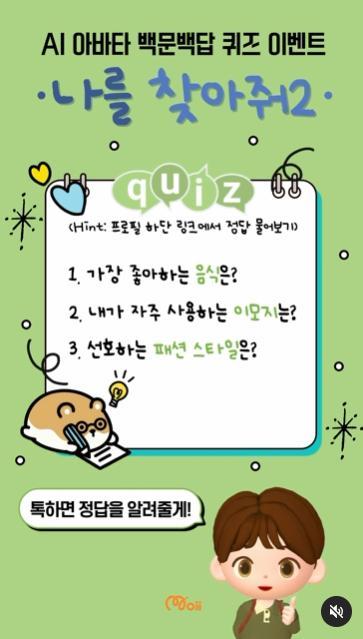 AI 아바타 백문백답 퀴즈 이벤트
·나를 찾아줘2·
quiz
(Hint: 프로필 하단 링크에서 정답 물어보기)
1. 가장 좋아하는 음식은?
2. 내가 자주 사용하는 이모지는?
3. 선호하는 패션 스타일은?
톡하면 정답을 알려줄게!
Moii